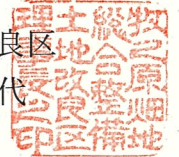 良区
代
牧之原畑地
総合整備
土地改良区
理事長之印